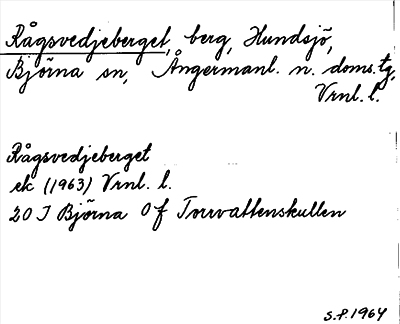 Rågsvedjeberget, berg, Hundsjö,
Björna sn, Ångermanl. n. doms.tg,
Vrnl. l.
Rågsvedjeberget
ek (1963) Vrnl. l.
20 I Björna 0f Torrvattenskullen
S.P. 1964